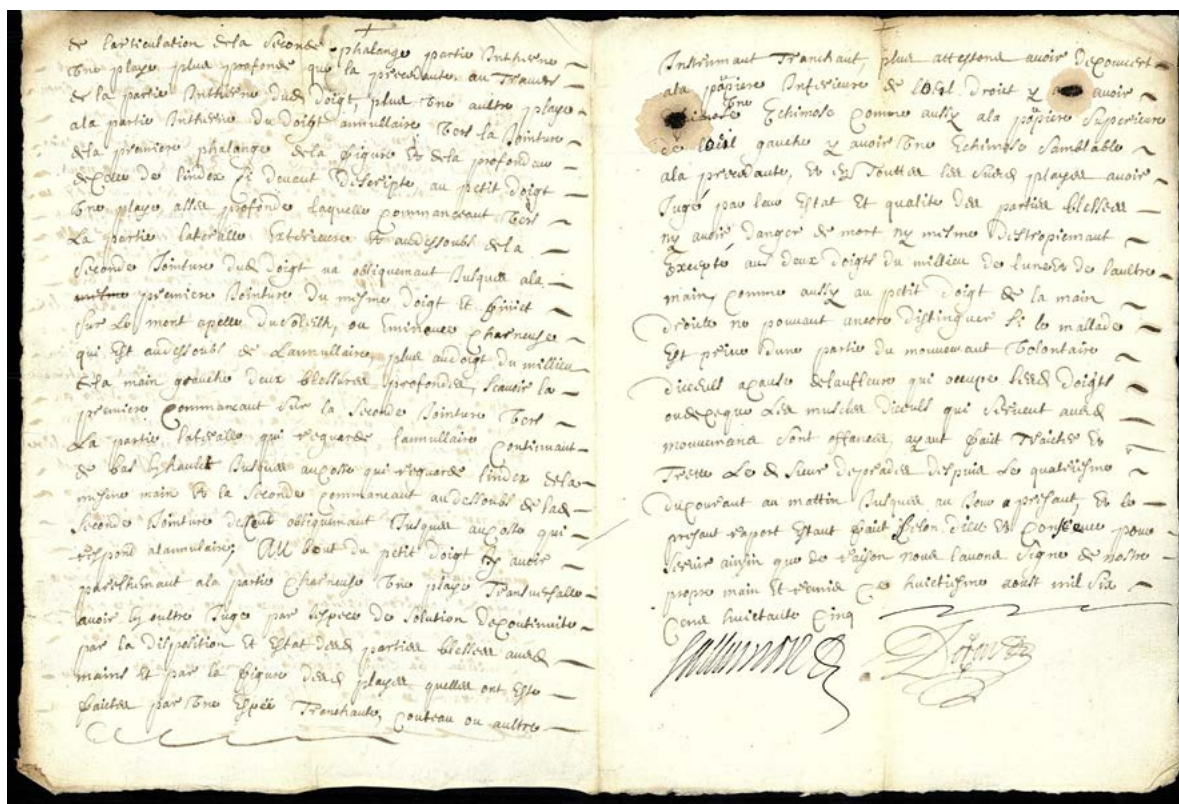 de larticulation dela seconde phalange partie Intherne
Une playe plus profonde que la precedante au Travers
de la partie Intherne dud doigt, plus Une aultre playe
ala partie Intherne du doigt annullaire Vers la Jointure
dela premiere phalange dela figure et dela profondeur
de celle de lindex cy devant descripte, au petit doigt
Une playe asses profonde laquelle commanceant Vers
La partie lateralle Exterieure et audessoubs dela
Seconde Jointure dud doigt va obliquemant Jusques ala
premiere Jointure du mesme doigt et finiet
sur Le mont apelle du soleilh, ou Eminence Charneuse
qui Est audessoubs de Lannullaire, plus audoigt du millieu
dela main gauche deux blessures profondes, scavoir la
premiere Commancant sur la seconde Jointure Vers
La partie lateralle qui reguarde lannullaire Continuant
de bas En hault Jusques aucoste qui reguarde lindex dela
mesme main et la seconde commancant audessoubs de lad
seconde Jointure descend obliquemant Jusques aucoste qui
respond alannulaire; Au bout du petit doigt y avoir
pareilhemant ala partie Charneuse Une playe Transversalle
avoir En oultre Juge par lespece de solution decontinuite
par la disposition et Estat desd parties blessees ausd
mains Et par la figure desd playes quelles ont Este
faictes par Une Espée Tranchante, Couteau ou aultre
Instrumant Tranchant, plus attestons avoir decouvert
ala paupiere Inferieure de lOeil droit y avoir
Une Echimose Comme aussy ala paupiere superieure
de lOeil gauche y avoir Une Echimose semblable
ala precedante, et En Touttes les susd playes avoir
Jugé par leur Estat Et qualité des parties blessees
ny avoir danger de mort ny mesme destropiemant
Excepté aus deux doigts du millieu de lune et de laultre
main, comme aussy au petit doigt de la main
droicte ne pouvant encore distinguer si le mallade
Est prive dune partie du mouvemant Volontaire
diceuls acause delanfleure qui occupe lesd doigts
ou deceque Les muscles diceuls qui servent ausd
mouvemans sont offances, ayant fait Traicter et
Traite Le d sieur deprades despuis Le quatriesme
ducourant au mattin Jusques au Jour apresant, et le
presant raport Estant fait selon dieu et Consience pour
servir ainsin que de raison nous lavons signe de nostre
propre main Et remis Ce huictiesme aoust mil six
Cens huictante Cinq